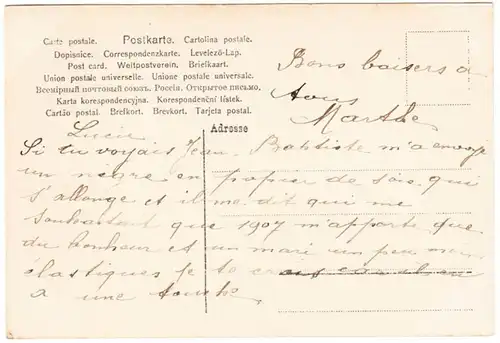 Carte postale. Postkarte. Cartolina postale.
Dopisnice. Correspondenzkarte. Levelező-Lap.
Post card. Weltpostverein. Briefkaart.
Union postale universelle. Unione postale universale.
Всемірный почтовый союзъ. Россія. Открытое письмо.
Karta korespondencyjna. Korespondenční lístek.
Cartão postal. Brefkort. Brevkort. Tarjeta postal.
Bons baisers a
tous
Marthe
Adresse
Lucie
Si tu voyais Jean Baptiste m'a envoyé
un negre en papier de soie qui
s'allonge et il me dit qui me
souhaitant que 1907 m'apporte que
du bonheur et un mari un peu moins
élastiques je te
a une